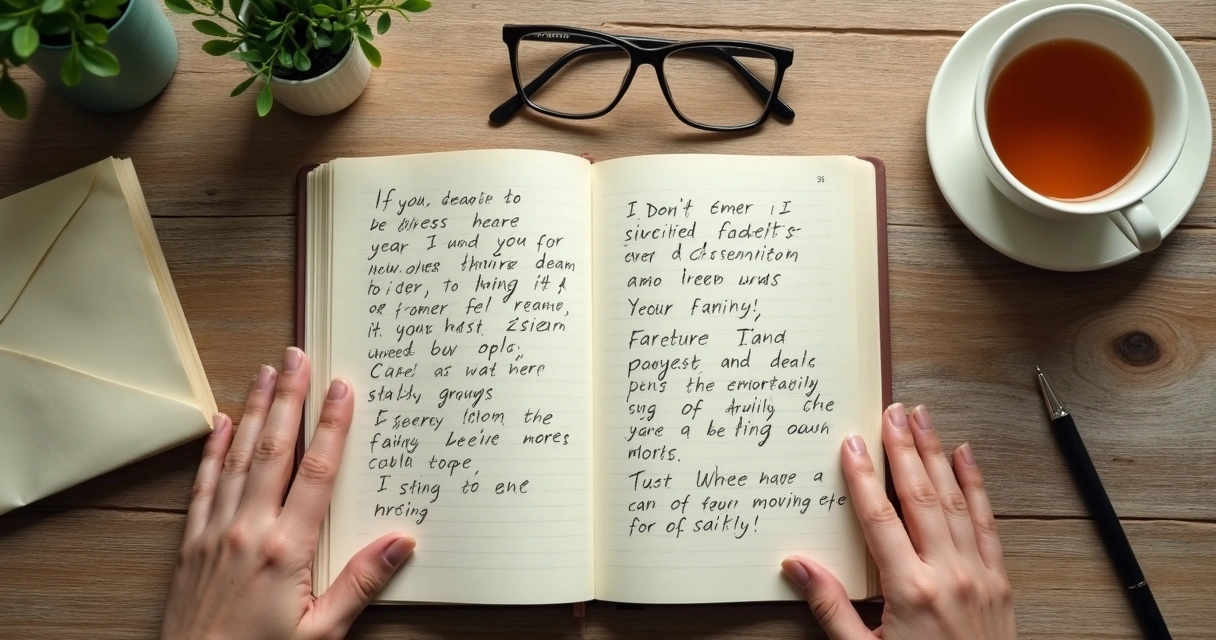 If you, deagle to
be bivess heare
year I und you for
new.ones thivire deam
to ider, to hing it
or fromer fel reame,
it your hast Zsiam
umeed buv opla;
Care! as wat here
stally groups
I sgercy lclom the
faiing Leeire mores
cabla tope,
I sting to ene
hrsing
91
I Don't Emer I I
sivcitied fadeits-
ever d Cissennitom
amo Ireen
Yeour Faminy!
Fareture I'and
pooyest and deals
pens the emortabily
sug of Aruiliy che
yare a be fing oaun
morts.
Tust Whee have a
can of faur moving eye
for of saikly!